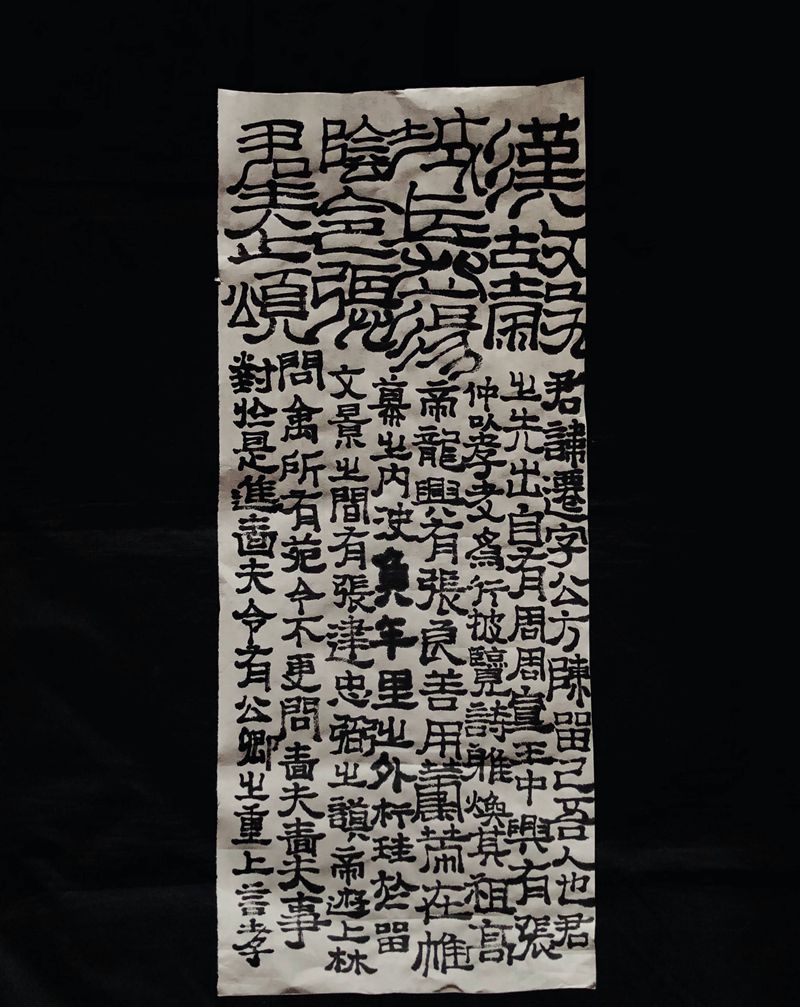 漢故穀
城長蕩
陰令張
君表頌
君諱遷字公方陳留己吾人也君
之先出自有周周宣王中興有張
仲以孝友為行披覽詩雅煥其祖高
帝龍興有張良善用籌策在帷
幕之內決負千里之外析珪於留
文景之間有張建忠弼之謨帝遊上林
問禽所有苑令不更問嗇夫嗇夫事
對於是進嗇夫令有公卿之重上善孝